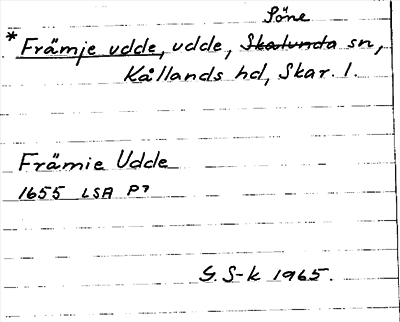 Söne
* Främje udde, udde, Skalunda sn,
Kållands hd, Skar. l.
Främie Udde
1655 LSA P7
G. S-k 1965.